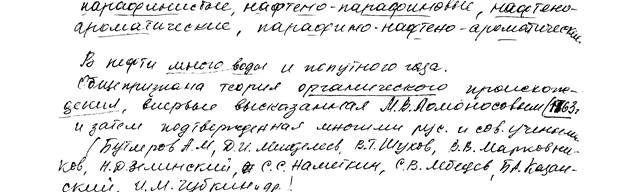 парафинистые, нафтено-парафиновые, нафтено-
ароматические, парафино-нафтено-ароматические.
В нефти много воды и попутного газа.
Общепризнана теория органического происхож-
дения, впервые высказанная М.В.Ломоносовым 1763г
и затем подтвержденная многими рус. и сов. учеными
(Бутлеров А.М, Д.И. Менделеев, В.Г. Шухов, В.В. Марковни-
ков, Н.Д. Зелинский, С.С. Наметкин, С.В. Лебедев, Б.А. Казан-
ский, И.М. Губкин и др.!